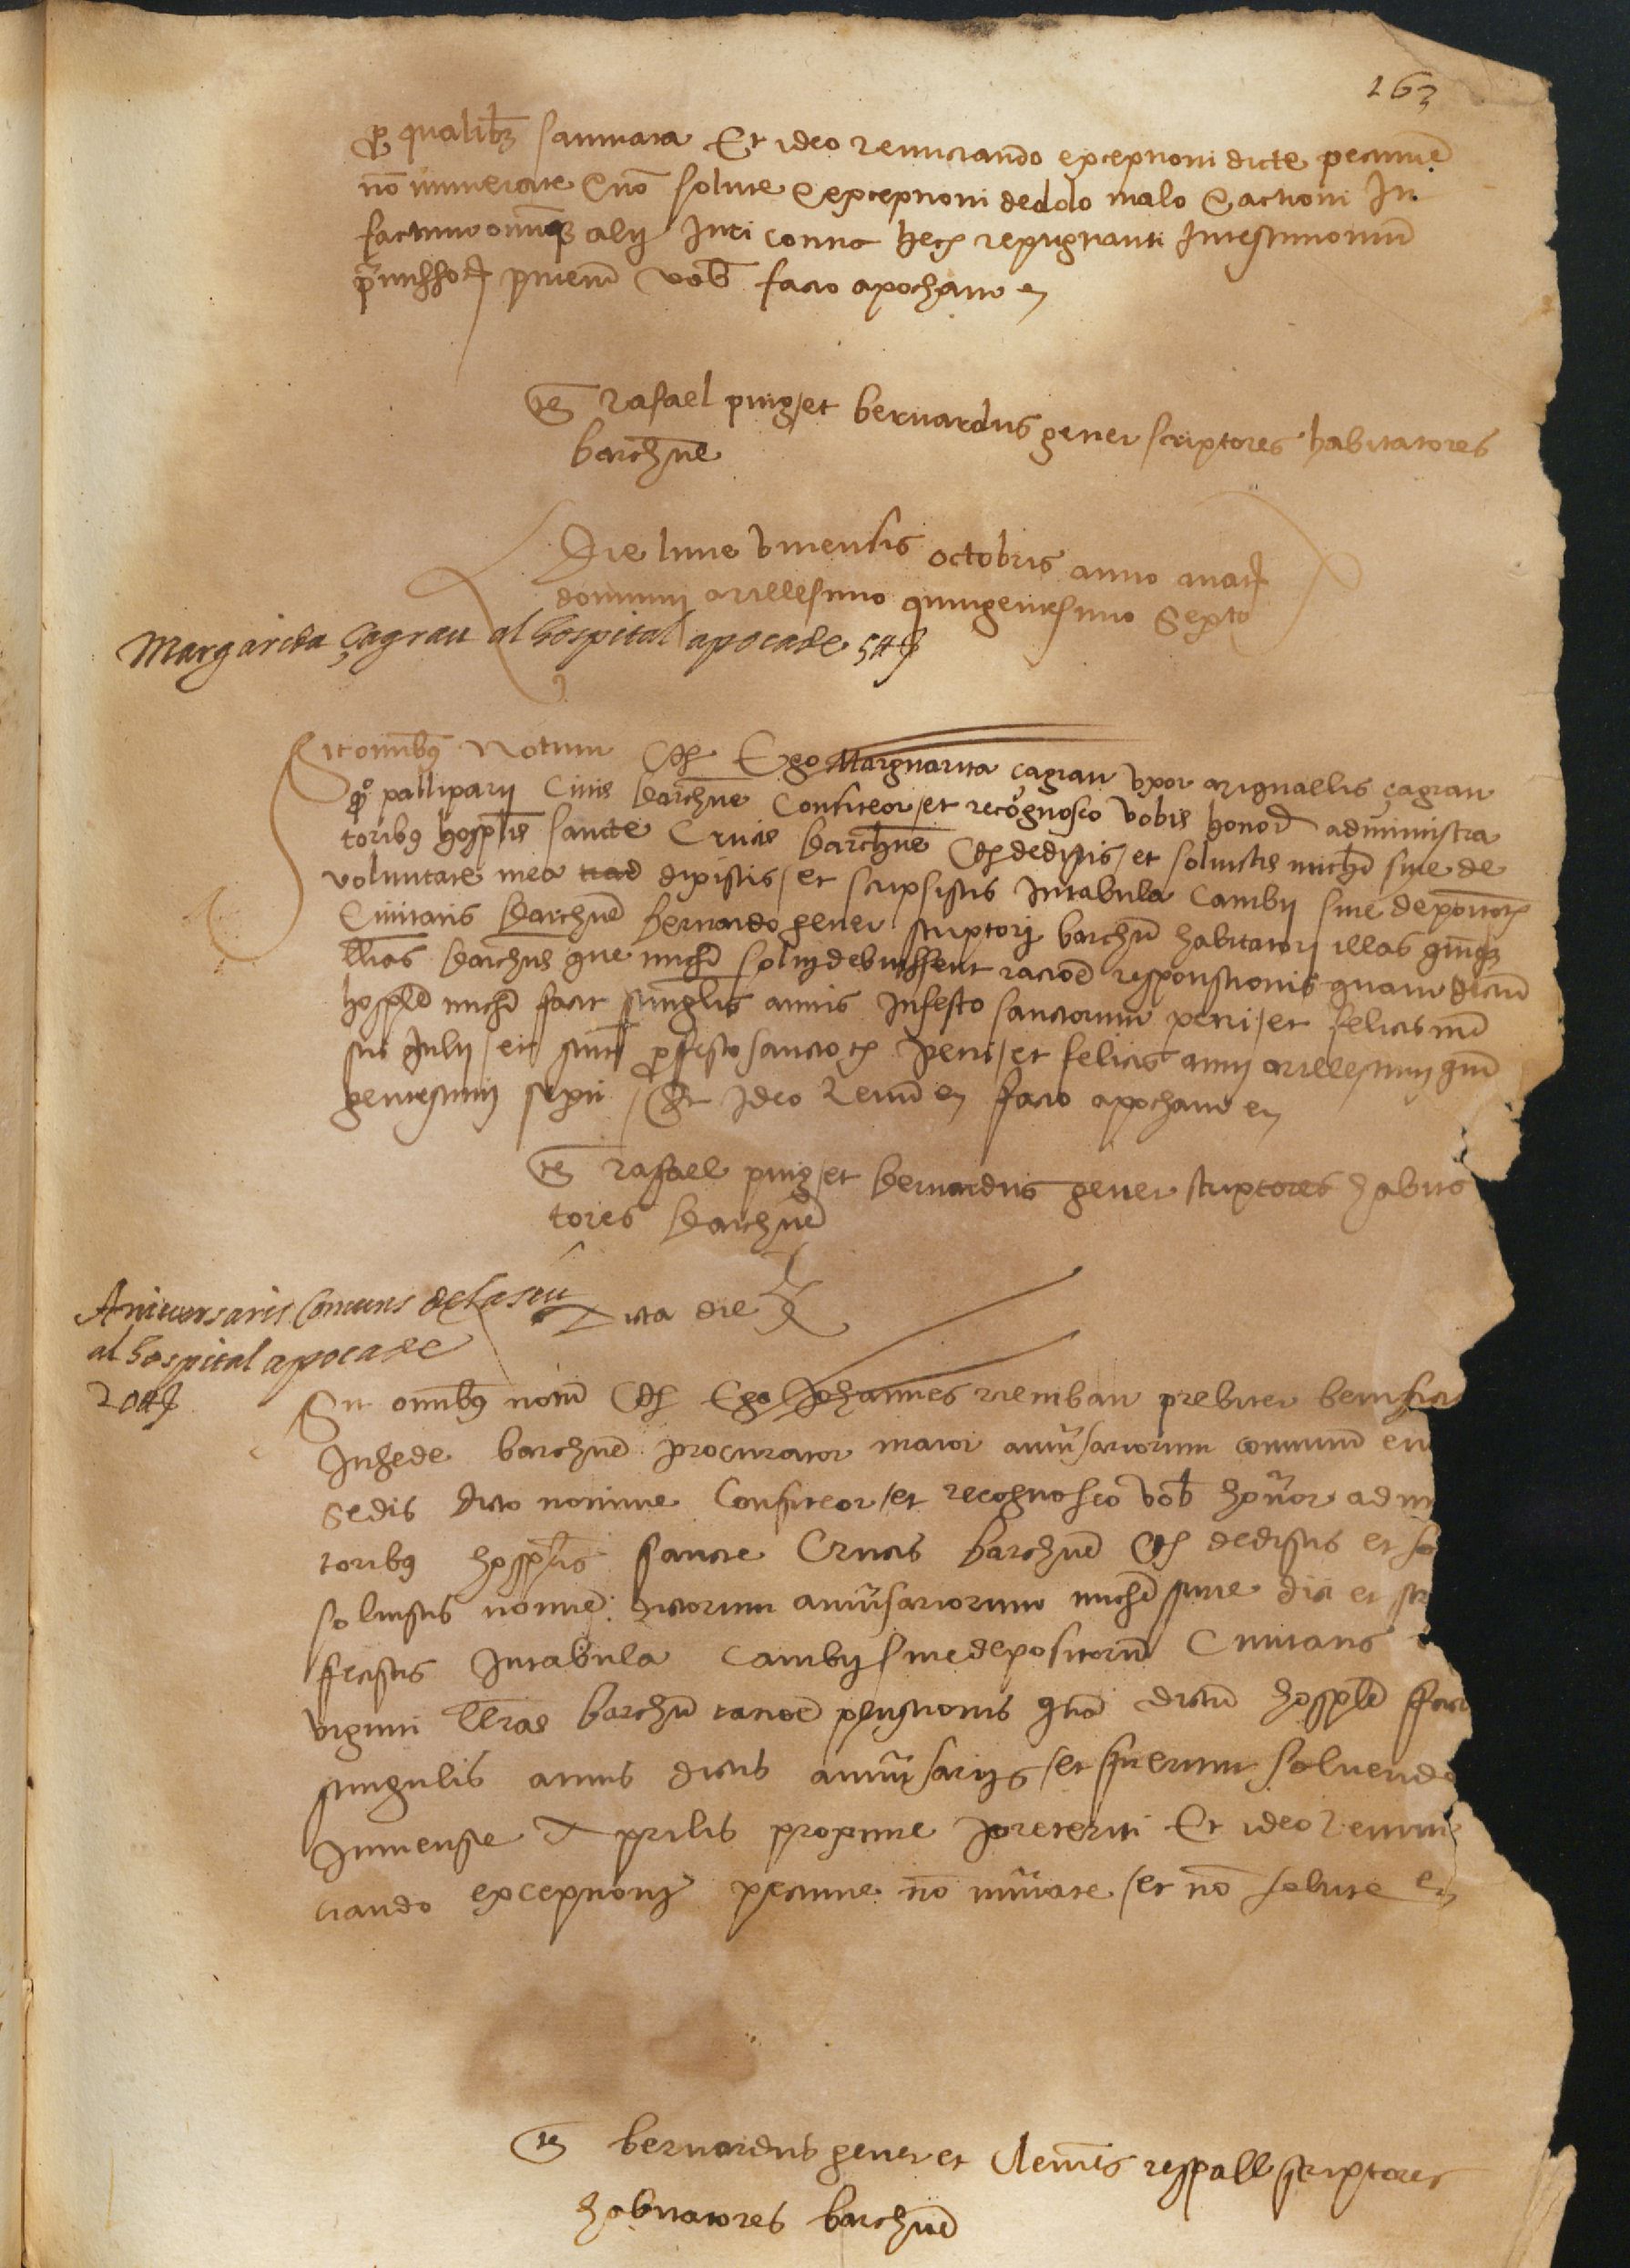 163
p qualibz sammata Et ideo renunciando exceptioni dicte pecunie
no numerate & no solute & exceptioni de dolo malo & actioni In
factum omniqz alij Juri contra hec repugnanti In testimonium
premissor presente vob facio apocham
tes Rafael puig / et bernardus gener scriptores habitatores
barchne
Die lune v mensis octobris anno a nat
domini Millesimo quingentesimo Septo
Margarida çagrau al hospital apoca de 5 ₶
Sit omnibus Notum Q Ego Marguarita çagrau vxor Miquaellis çagrau
qo palliparij Ciuis barchne Confiteor / et recognosco vobis honor administra
toribus hosplis sancte Crucis barchne Q dedistis / et soluistis michi siue de
voluntate mea dixistis / et scripsistis In tabula Cambij siue depositor
Ciuitatis barchne bernardo gener scriptorj barchne habitatorj illas quinqz
lliras barchne que michi soluj debuissent racione responsionis quam dictu
hosple michi facit singlis annis In festo sanctorum petri / et felicis men
sis Julij / et sunt pro festo sanctor petri / et felicis annj Millesimj quin
gentesimj septi / Et Jdeo Renun facio apocham
tes Rafael puig / et bernardus gener scriptores habita
tores barchne
Aniuersaris Comuns de la seu
al hospital apoca de
20 ₶
Dicta die
Sit omnibus notu Q Ego Johannes riembau prebiter benefici
In sede barchne procurator maior anniuersariorum comunu eiu
Sedis dicto nomine Confiteor / et recognosco vob honor admi
toribus hosplis sancte Crucis barchne Q dedistis et so
soluistis nomine dictorum anniuersariorum michi siue dici et scr
fecistis In tabula Cambij siue depositoru Ciuitatis
viginti lliras barchne racione pensionis quam dictu hosple faci
singulis annis dictis anniuersarijs / et fuerunt soluende
In mense Aprilis proxime preteriti Et ideo Renun
ciando exceptionj pecunie no numerate / et no solute
tes bernardus gener et Clemens respall scriptores
habitatores barchne